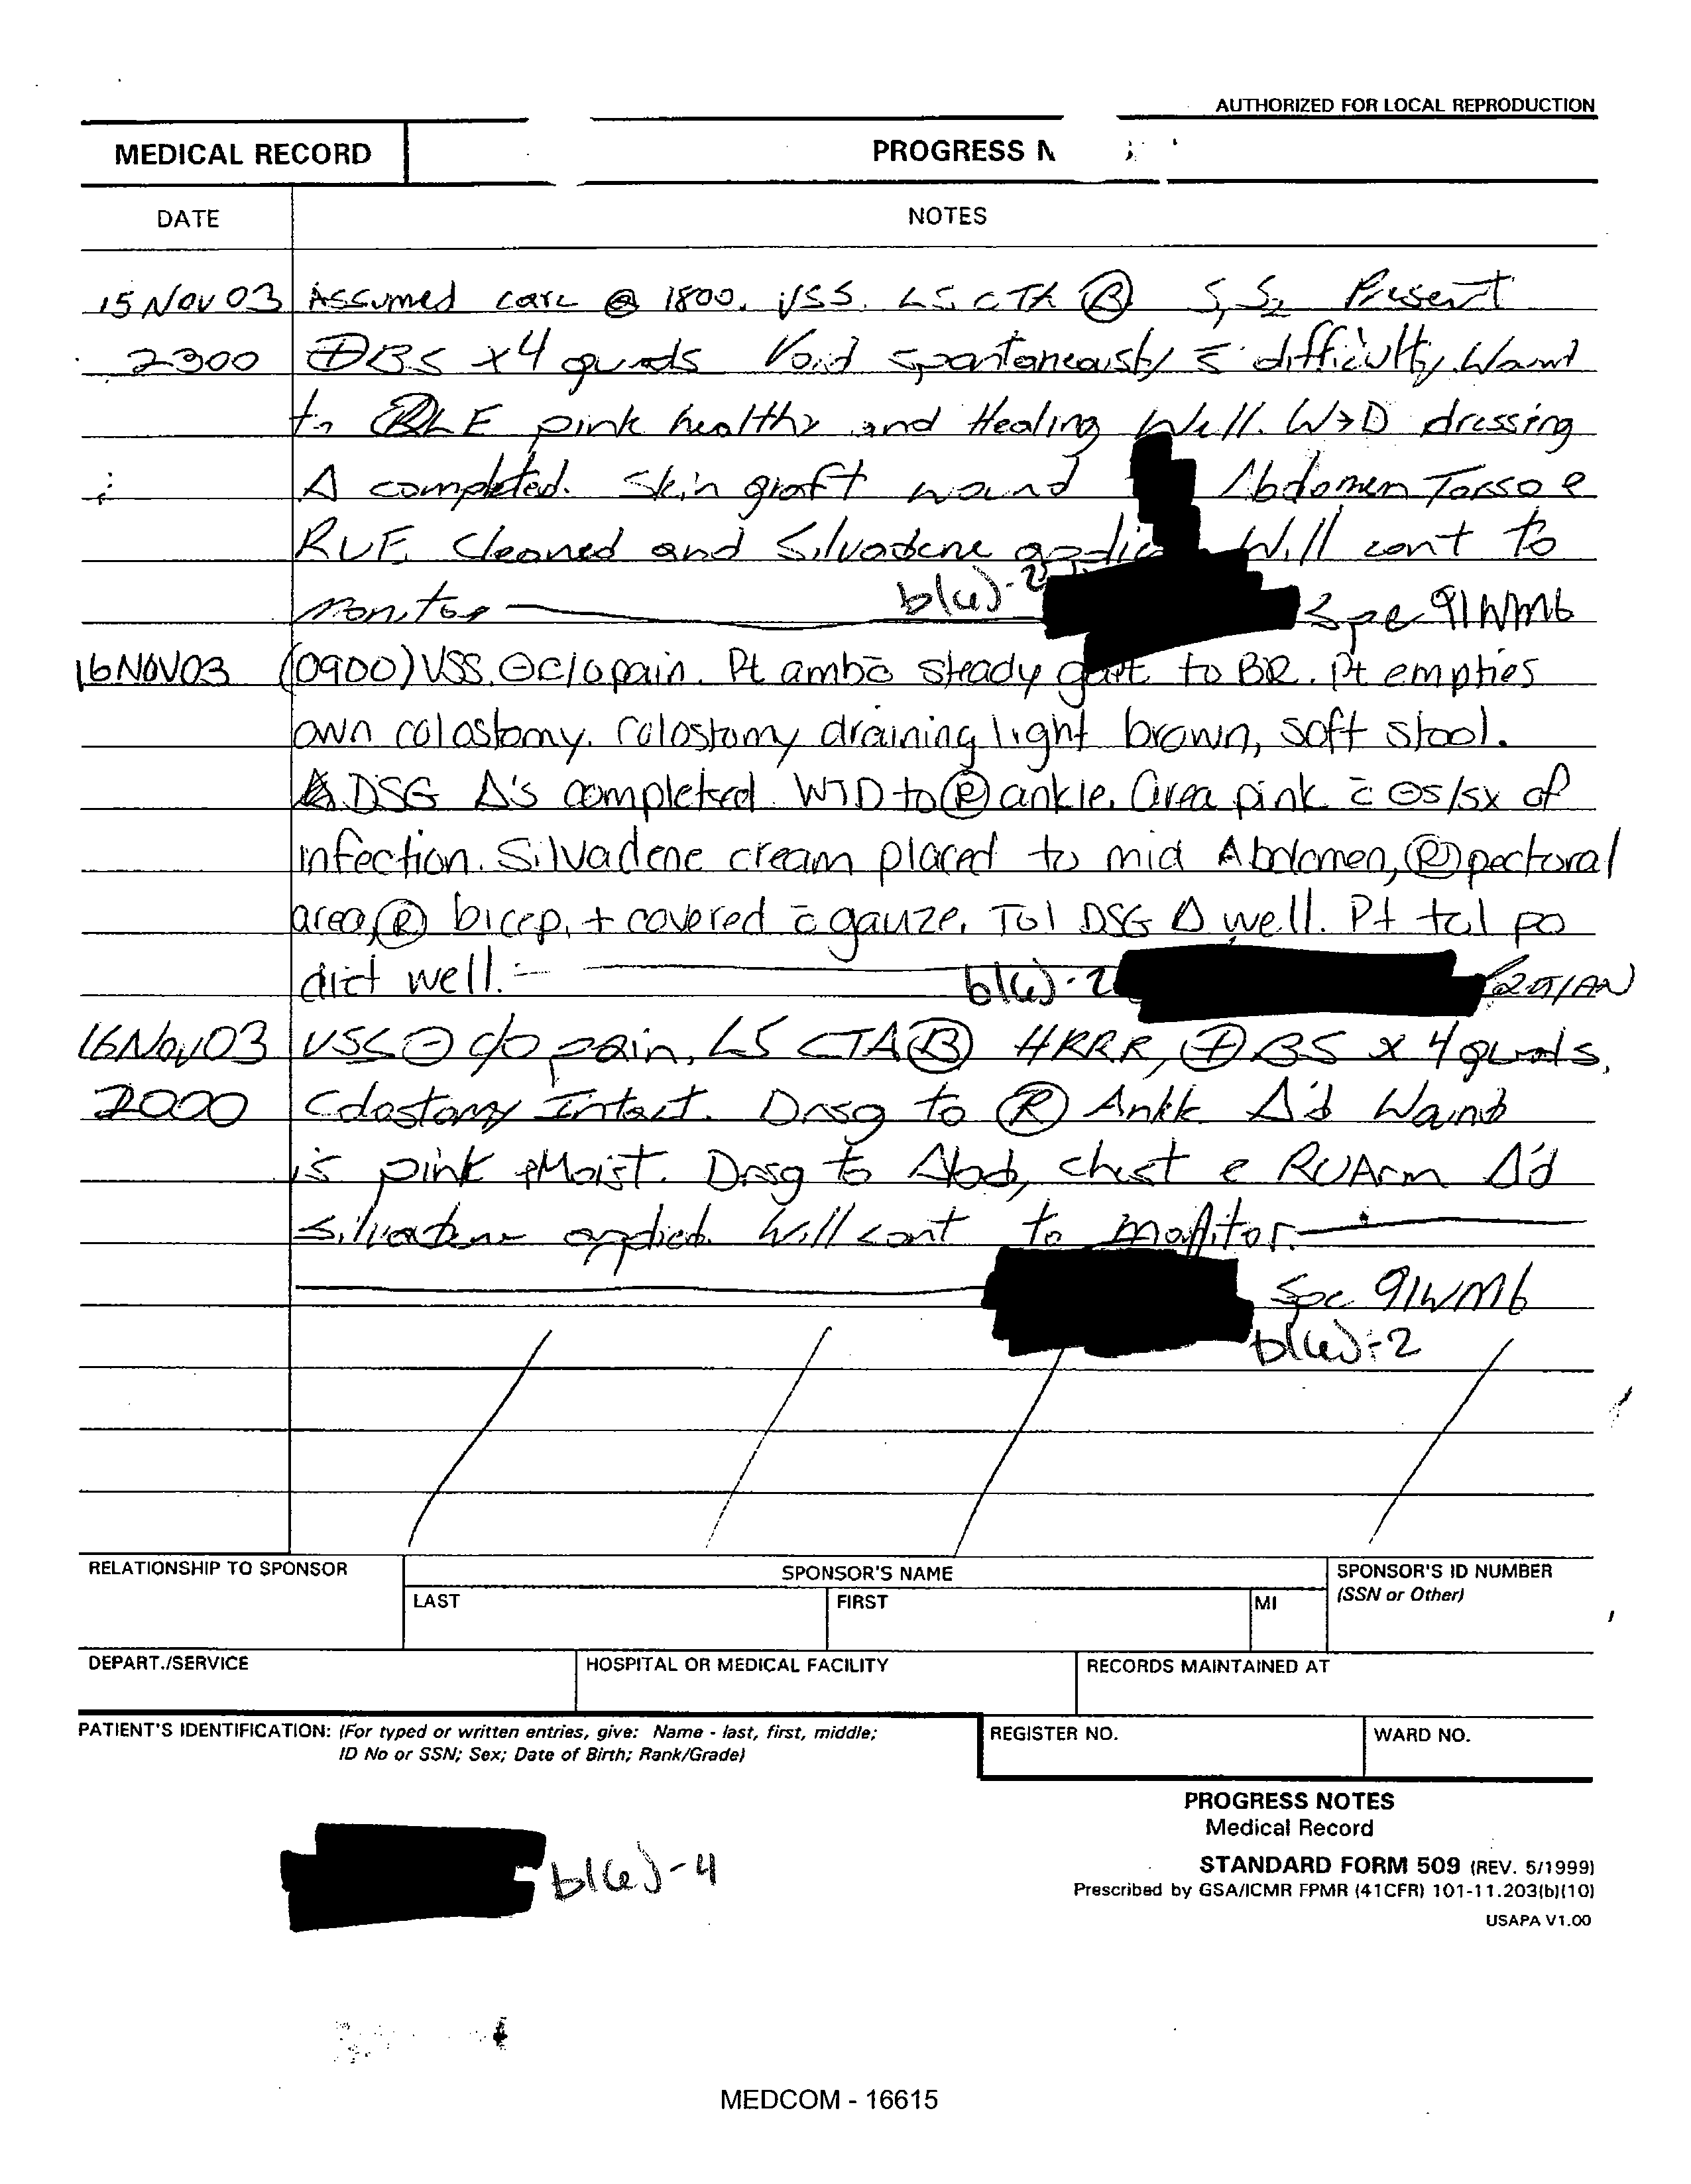 AUTHORIZED FOR LOCAL REPRODUCTION
MEDICAL RECORD PROGRESS N
DATE NOTES
15 Nov 03 Assumed care @ 1800. VSS. LS CTA Ⓑ S1 S2 Present
2300 ⊕BS x4 quads Void spontaneously s̄ difficulty. Wound
to ⓇLE pink healthy and Healing Well. W→D dressing
Δ completed. Skin graft wound Abdomen Torso e
RUE. Cleaned and Silvadene applied Will cont to
monitor b(6)-2 Spc 91WM6
16NOV03 (0900) VSS. ⊖c/o pain. Pt amb c̄ steady gait to BR. Pt empties
own colostomy. Colostomy draining light brown, soft stool.
DSG Δ's completed. WTD to Ⓡ ankle. Area pink c̄ ⊖s/sx of
infection. Silvadene cream placed to mid Abdomen, Ⓡ pectoral
area, Ⓡ bicep, + covered c̄ gauze. Tol DSG Δ well. Pt tol po
diet well. b(6)-2 /AN
16Nov03 VSS ⊖ c/o pain, LS CTA Ⓑ HRRR, ⊕BS x 4 quads.
2000 Colostomy Intact. Drsg to Ⓡ Ankle Δ'd Wound
is pink +Moist. Drsg to Abd, chest e RUArm Δ'd
Silvadene applied. Will cont to monitor.
Spc 91WM6
b(6)-2
RELATIONSHIP TO SPONSOR SPONSOR'S NAME SPONSOR'S ID NUMBER
LAST FIRST MI (SSN or Other)
DEPART./SERVICE HOSPITAL OR MEDICAL FACILITY RECORDS MAINTAINED AT
PATIENT'S IDENTIFICATION: (For typed or written entries, give: Name - last, first, middle; REGISTER NO. WARD NO.
ID No or SSN; Sex; Date of Birth; Rank/Grade)
PROGRESS NOTES
Medical Record
STANDARD FORM 509 (REV. 5/1999)
Prescribed by GSA/ICMR FPMR (41CFR) 101-11.203(b)(10)
USAPA V1.00
b(6)-4
MEDCOM - 16615